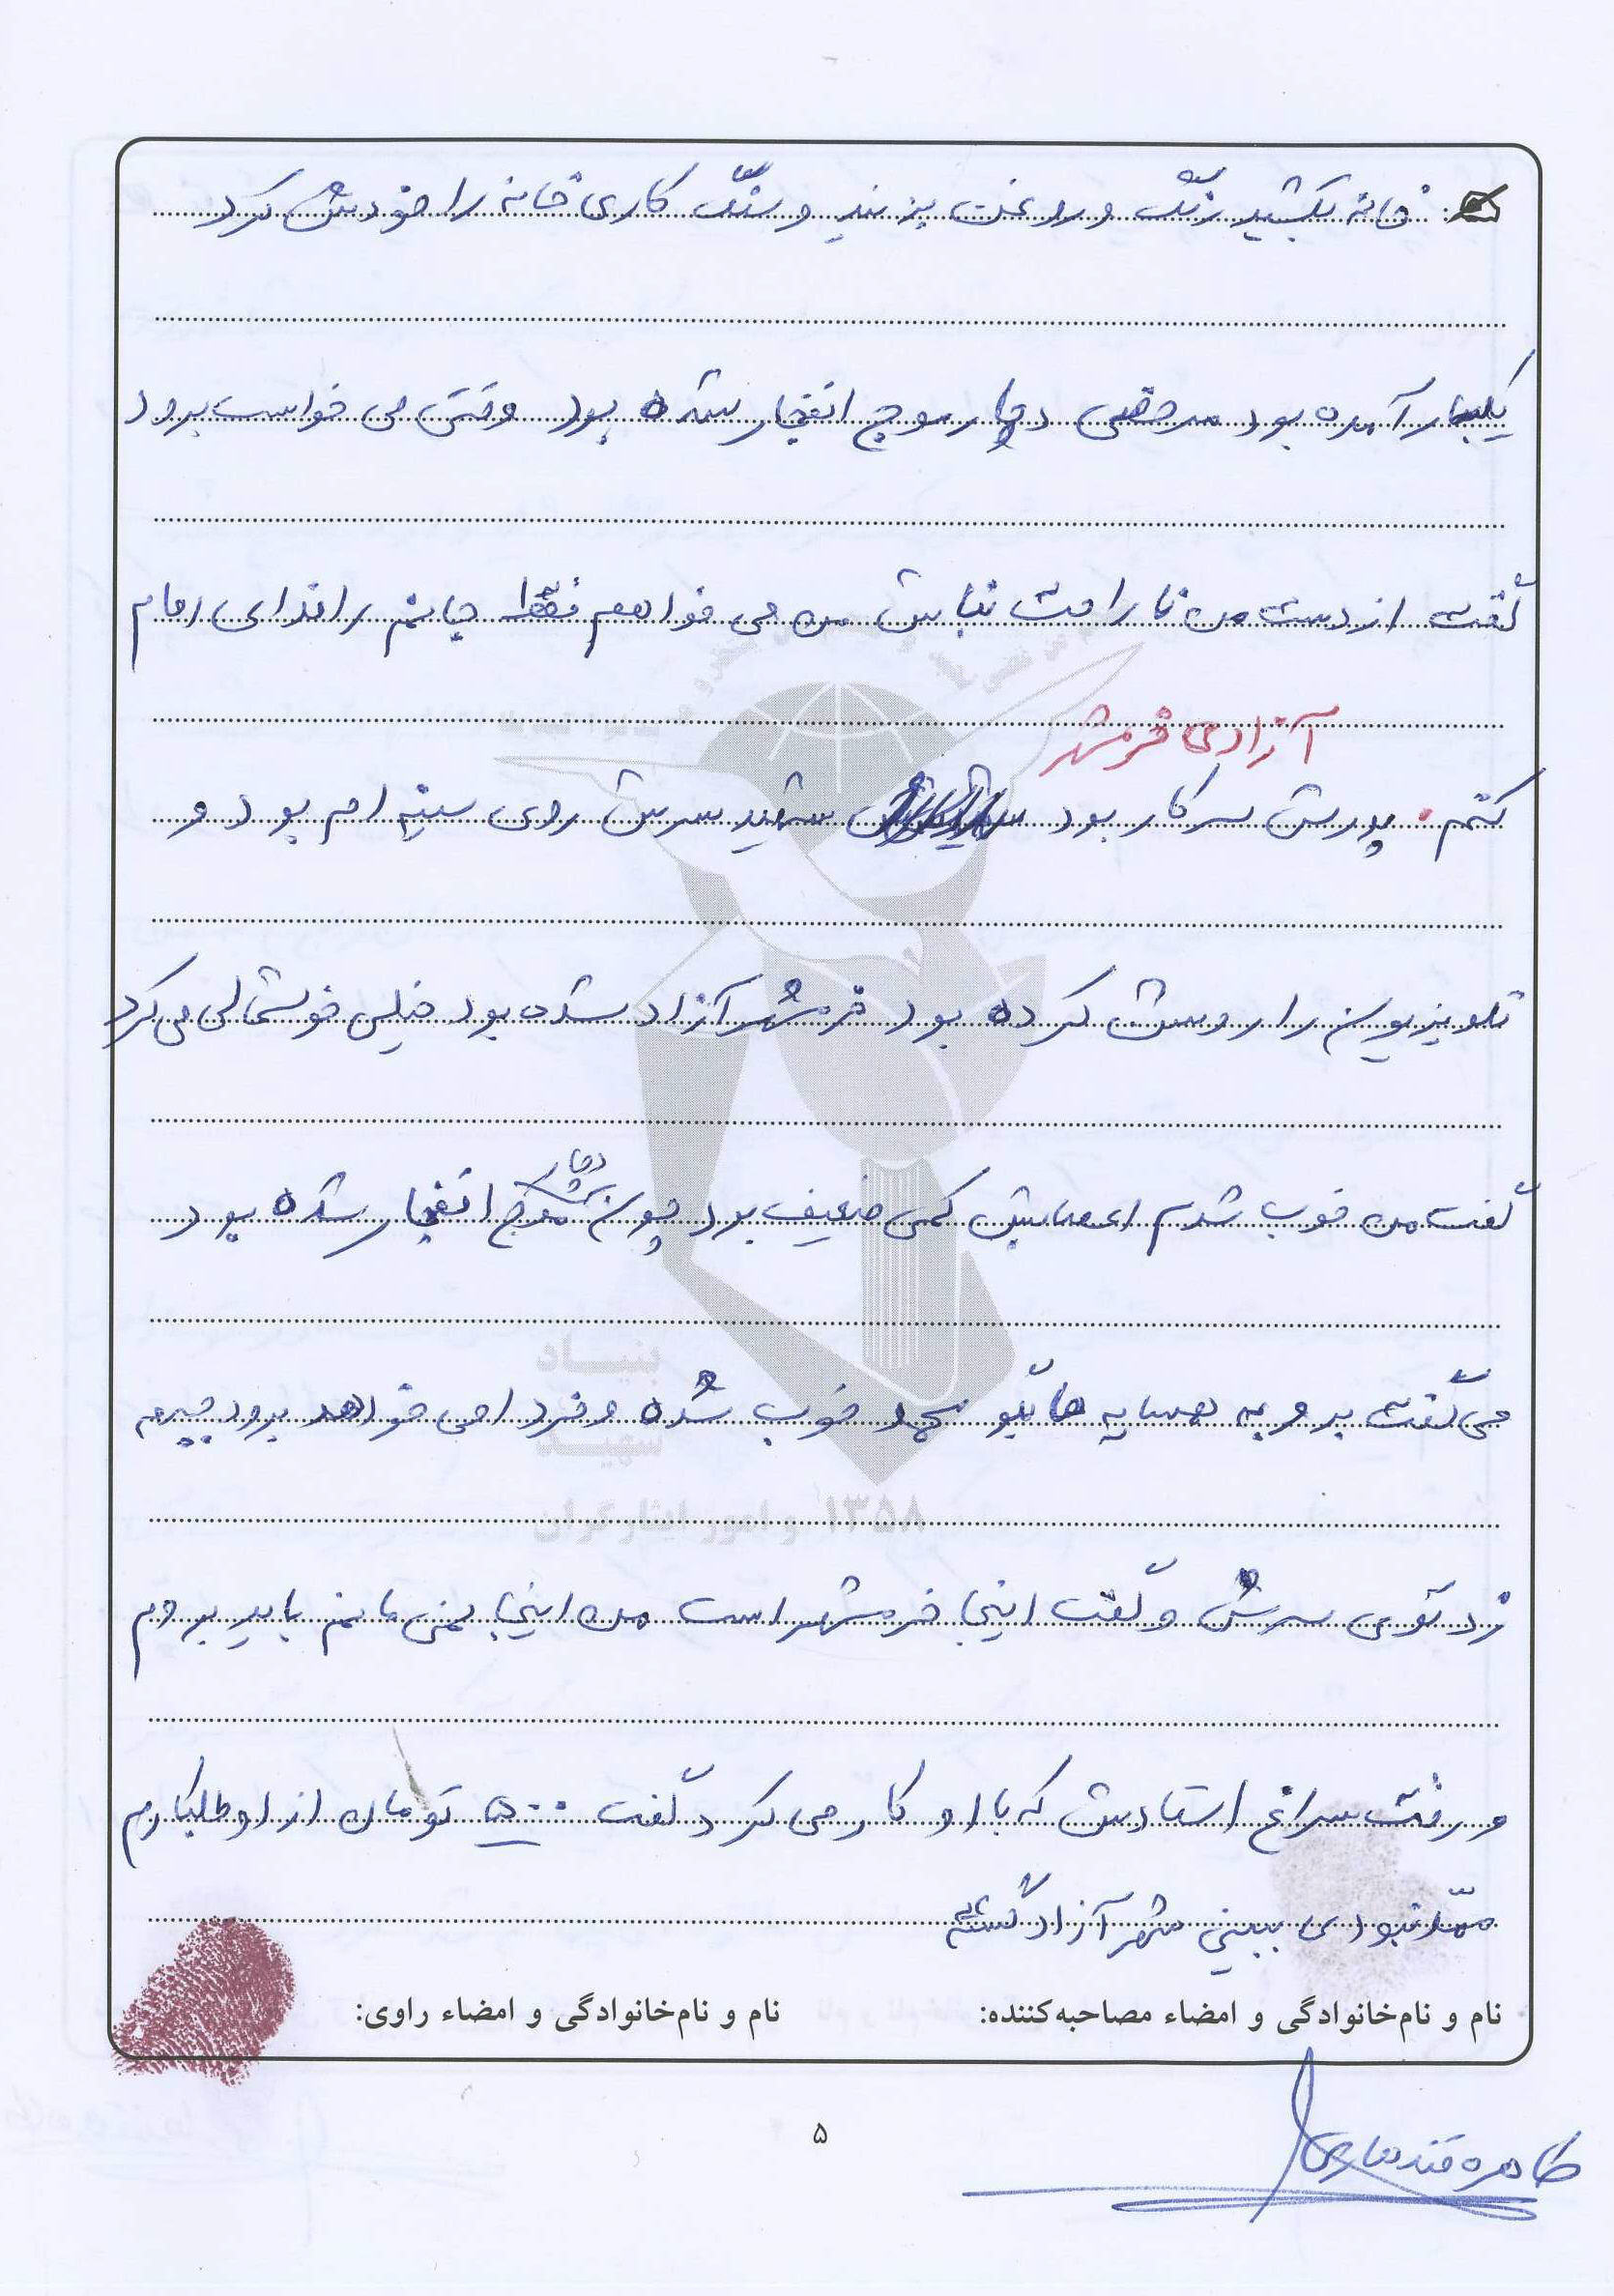 خانه بکشید رنگ و روغن بزنید و سنگ کاری خانه را خودش کرد
یکبار آمده بود مرخصی دچار موج انفجار شده بود وقتی می خواست برود
گفت از دست من ناراحت نباش من می خواهم فقط جانم را فدای امام
آزادی خرمشهر
کنم. پدرش سر کار بود شهید سرش روی سینه ام بود و
تلویزیون را روشن کرده بود خرمشهر آزاد شده بود خیلی خوشحالی می کرد
دچار
گفت من خوب شدم اعصابش کمی ضعیف بود چون موج انفجار شده بود
می گفت برو به همسایه ها بگو محمد خوب شده و فردا می خواهد برود جبهه
زد توی سرش و گفت اینجا خرمشهر است من اینجا نمی مانم باید بروم
و رفت سراغ استادش که با او کار می کرد گفت ۵۰۰ تومان از او طلبکارم
ممد نبودی ببینی شهر آزاد گشته
نام و نام‌خانوادگی و امضاء مصاحبه‌کننده:
نام و نام‌خانوادگی و امضاء راوی:
بنیاد
شهید
و امور ایثارگران
۱۳۵۸
۵
طاهره قندهاری